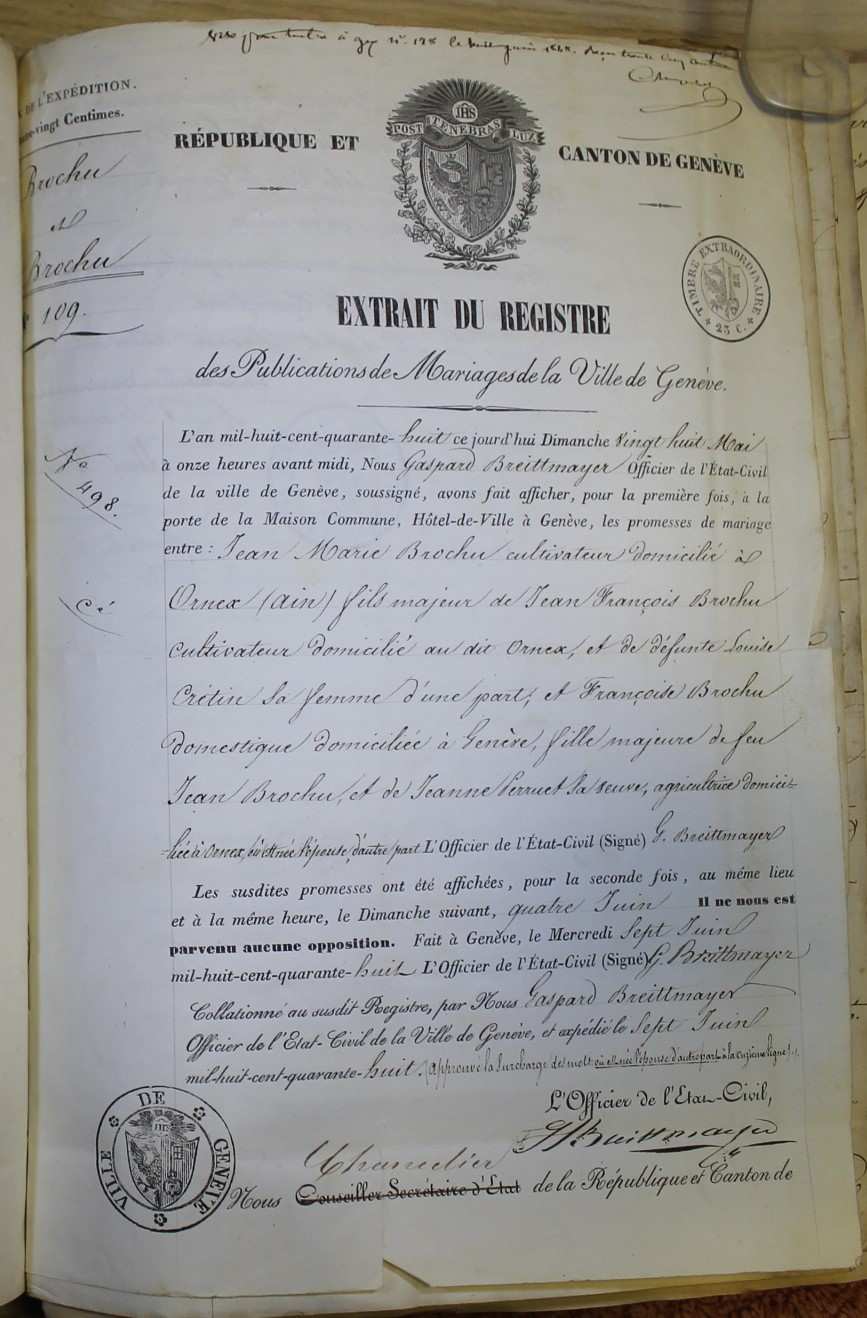 à gex n° 128 le juin 1848.
DE L'EXPÉDITION.
vingt Centimes.
Brochu
et
Brochu
109.
N°
498.
cé
RÉPUBLIQUE ET
JHS
POST TENEBRAS LUX
CANTON DE GENÈVE
TIMBRE EXTRAORDINAIRE
* 25 C. *
EXTRAIT DU REGISTRE
des Publications de Mariages de la Ville de Genève.
L'an mil-huit-cent-quarante-huit ce jourd'hui Dimanche vingt huit Mai
à onze heures avant midi, Nous Gaspard Breittmayer Officier de l'État-Civil
de la ville de Genève, soussigné, avons fait afficher, pour la première fois, à la
porte de la Maison Commune, Hôtel-de-Ville à Genève, les promesses de mariage
entre : Jean Marie Brochu cultivateur domicilié à
Ornex (ain) fils majeur de Jean François Brochu
cultivateur domicilié au dit Ornex, et de défunte Louise
Crétin sa femme d'une part, et Françoise Brochu
domestique domiciliée à Genève, fille majeure de feu
Jean Brochu, et de Jeanne Perruet sa veuve, agricultrice domici-
-liée à Ornex, où est née l'épouse, d'autre part L'Officier de l'État-Civil (Signé) G. Breittmayer
Les susdites promesses ont été affichées, pour la seconde fois, au même lieu
et à la même heure, le Dimanche suivant, quatre Juin Il ne nous est
parvenu aucune opposition. Fait à Genève, le Mercredi Sept Juin
mil-huit-cent-quarante-huit L'Officier de l'État-Civil (Signé) G. Breittmayer
Collationné au susdit Registre, par Nous Gaspard Breittmayer
Officier de l'Etat-Civil de la Ville de Genève, et expédié le Sept Juin
mil-huit-cent-quarante-huit. (approuvé la surcharge des mots où est née l'épouse d'autre part à la onzième ligne).
L'Officier de l'Etat-Civil,
G Breittmayer
VILLE DE GENEVE
JHS
Chancelier
Nous Conseiller Secrétaire d'Etat de la République et Canton de